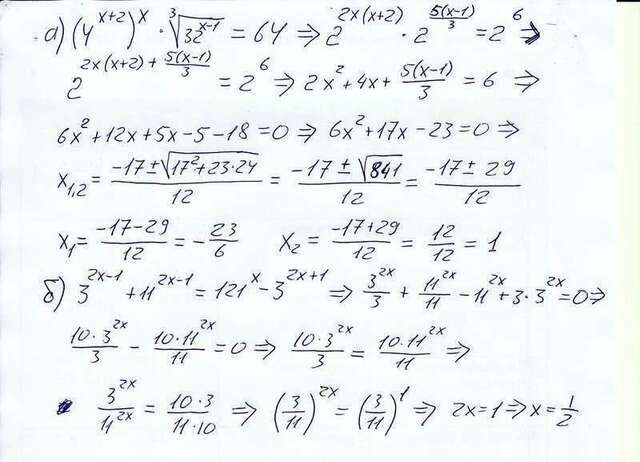 а) (4^(x+2))^x · ∛(32^(x-1)) = 64 ⇒ 2^(2x(x+2)) · 2^(5(x-1)/3) = 2^6 ⇒
2^(2x(x+2) + 5(x-1)/3) = 2^6 ⇒ 2x² + 4x + 5(x-1)/3 = 6 ⇒
6x² + 12x + 5x - 5 - 18 = 0 ⇒ 6x² + 17x - 23 = 0 ⇒
x₁,₂ = (-17 ± √(17² + 23·24))/12 = (-17 ± √841)/12 = (-17 ± 29)/12
x₁ = (-17-29)/12 = -23/6 x₂ = (-17+29)/12 = 12/12 = 1
б) 3^(2x-1) + 11^(2x-1) = 121^x - 3^(2x+1) ⇒ 3^(2x)/3 + 11^(2x)/11 - 11^(2x) + 3·3^(2x) = 0 ⇒
10·3^(2x)/3 - 10·11^(2x)/11 = 0 ⇒ 10·3^(2x)/3 = 10·11^(2x)/11 ⇒
3^(2x)/11^(2x) = 10·3/11·10 ⇒ (3/11)^(2x) = (3/11)^1 ⇒ 2x = 1 ⇒ x = 1/2